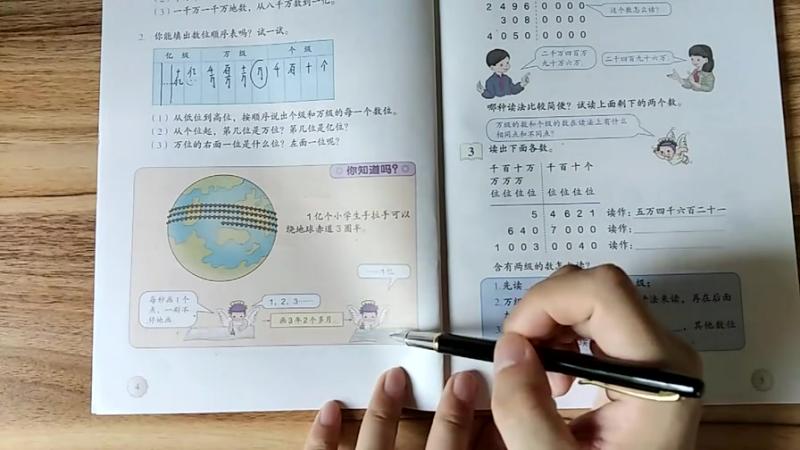 (3) 一千万一千万地数，从八千万数到一亿。
2. 你能填出数位顺序表吗？试一试。
亿 级 万 级 个 级
十亿 亿 千万 百万 十万 万 千 百 十 个
(1) 从低位到高位，按顺序说出个级和万级的每一个数位。
(2) 从个位起，第几位是万位？第几位是亿位？
(3) 万位的右面一位是什么位？左面一位呢？
你知道吗？
1亿个小学生手拉手可以
绕地球赤道3圈半。
……1亿
每秒画1个
点，一刻不
停地画
1, 2, 3……
画3年2个多月
4
2 4 9 6 0 0 0 0
3 0 8 0 0 0 0
4 0 5 0 0 0 0 0
这个数怎么读？
二千四百万
九十万六万
二千四百九十六万。
哪种读法比较简便？试读上面剩下的两个数。
万级的数和个级的数在读法上有什么
相同点和不同点？
3 读出下面各数。
千百十万 千百十个
万万万
位位位位 位位位位
5 4 6 2 1 读作：五万四千六百二十一
6 4 0 7 0 0 0 读作：
1 0 0 3 0 0 4 0 读作：
含有两级的数怎么读？
1. 先读 级；
2. 万级 法来读，再在后面
3. ，其他数位
5